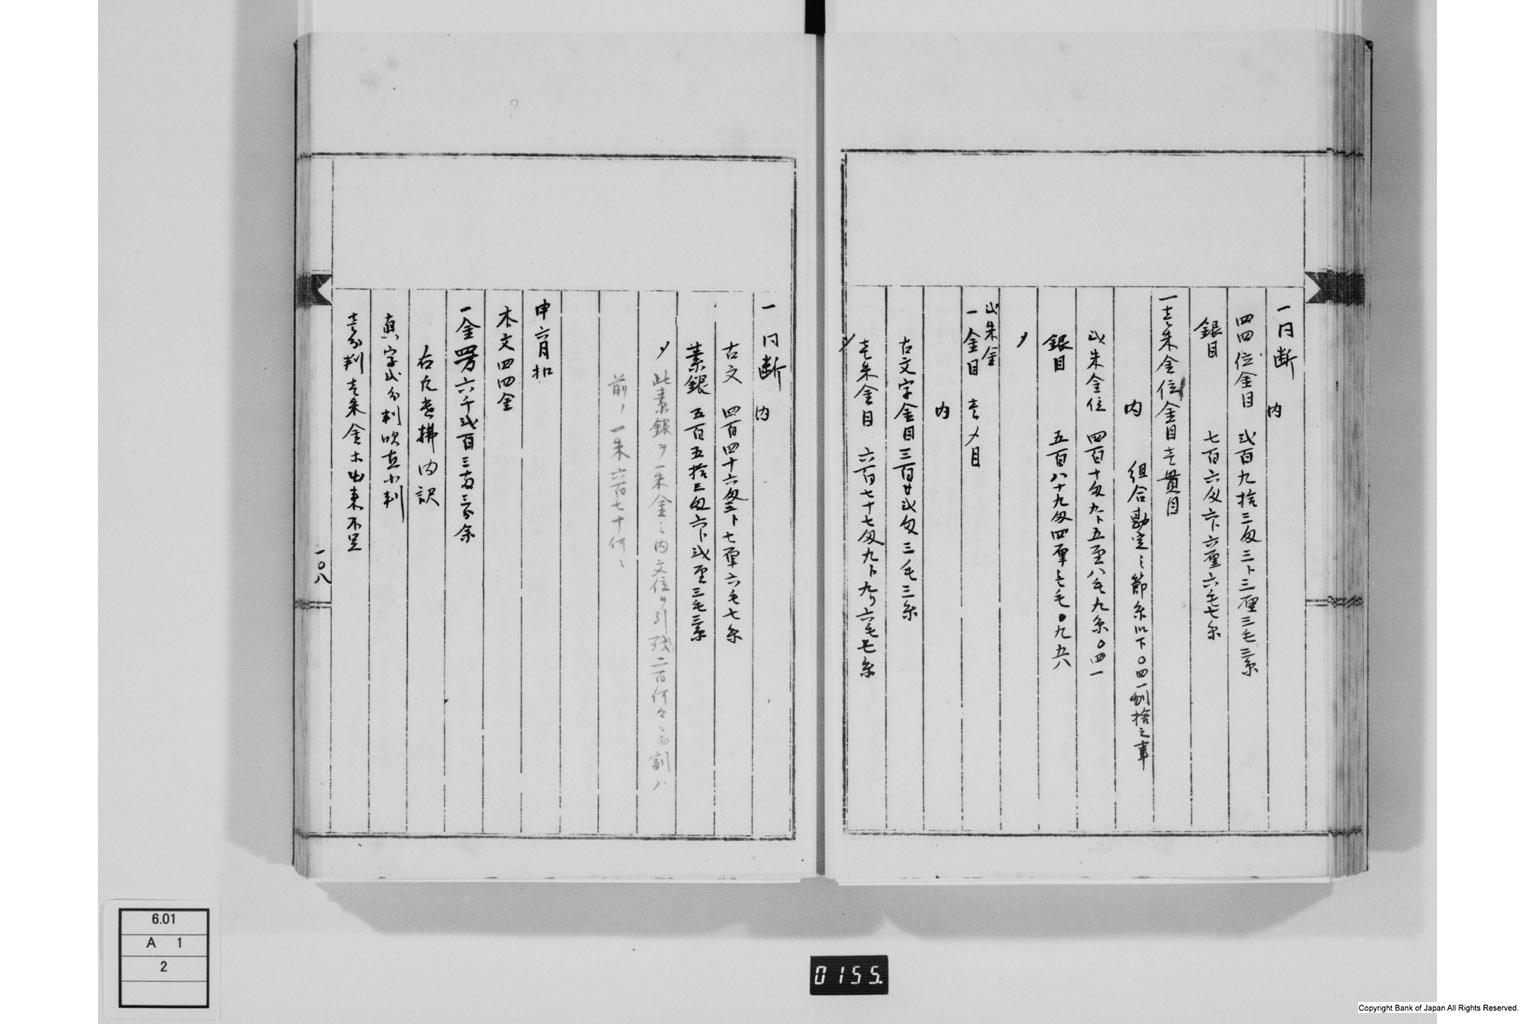 一同断　内
四四位金目　弐百九拾三匁三卜三厘三毛三糸
銀目　七百六匁六卜六厘六毛七糸
一壱朱金位金目壱貫目
内　組合勘定之節糸以下〇四一割捨之事
弐朱金位　四百十匁九卜五厘八毛九糸〇四一
銀目　五百八十九匁四厘〇九五六
〆
弐朱金
一金目　壱〆目
内
古文字金目三百廿弐匁三毛三糸
壱朱金目　六百七十七匁九卜九り六毛七糸
一同断　内
古文　四百四十六匁三卜七厘六毛七糸
素銀　五百五拾三匁六卜弐厘三毛三糸
〆　此素銀ヲ一朱金之内文位ヲ引残二百何々
前ノ一朱六百七十何
申六月扣
本文四四金
一金　六千弐百三
右九 払内訳
真字弐分判吹直小判
壱分判壱朱金出来不足
一〇八
6.01
A 1
2
0155.
Copyright Bank of Japan All Rights Reserved.